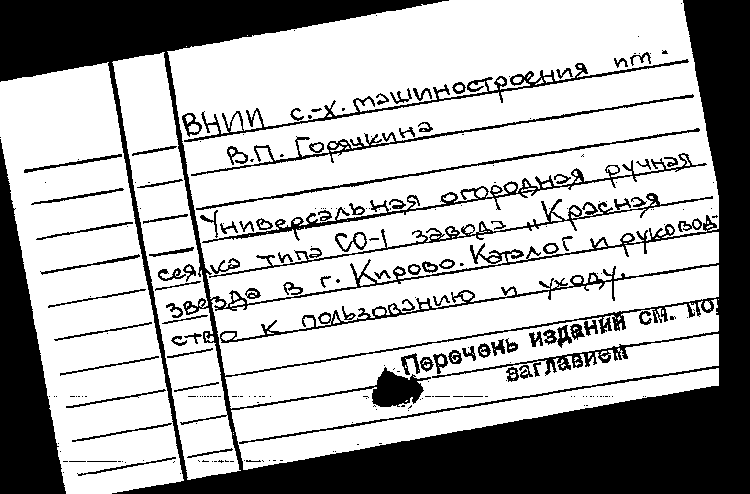 ВНИИ с.-х. машиностроения им.
В.П. Горячкина
Универсальная огородная ручная
сеялка типа СО-1 завода „Красная
звезда в г. Кирово. Каталог и руковод-
ство к пользованию и уходу.
Перечень изданий см. под
заглавием